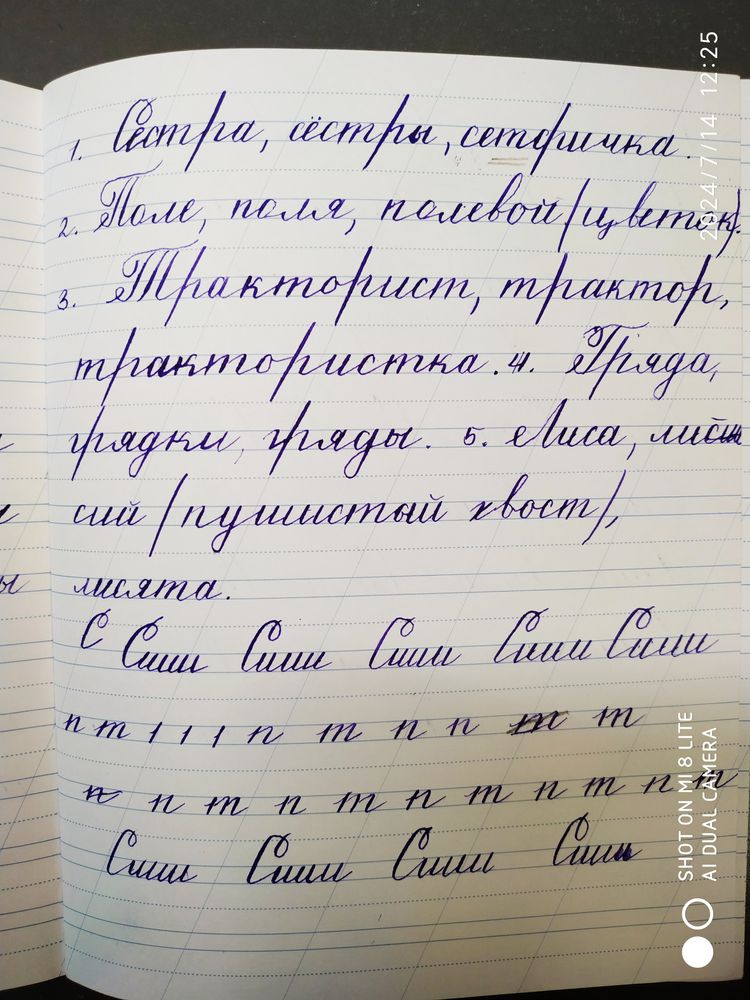 1. Сестра, сёстры, сетфричка.
2. Поле, поля, полевой (цветок).
3. Тракторист, трактор,
трактористка. 4. Гряда,
грядки, гряды. 5. Лиса, лис
сий (пушистый хвост),
лисята.
С Сиши Сиши Сиши Сиши Сиши
п т ı ı ı п т п п т т
п п т п т п т п т п т
Сиши Сиши Сиши Сиши
2024/7/14 12:25
SHOT ON MI 8 LITE
AI DUAL CAMERA